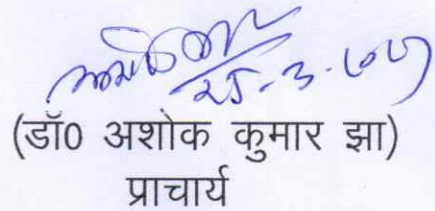 25-3-
(डॉ0 अशोक कुमार झा)
प्राचार्य